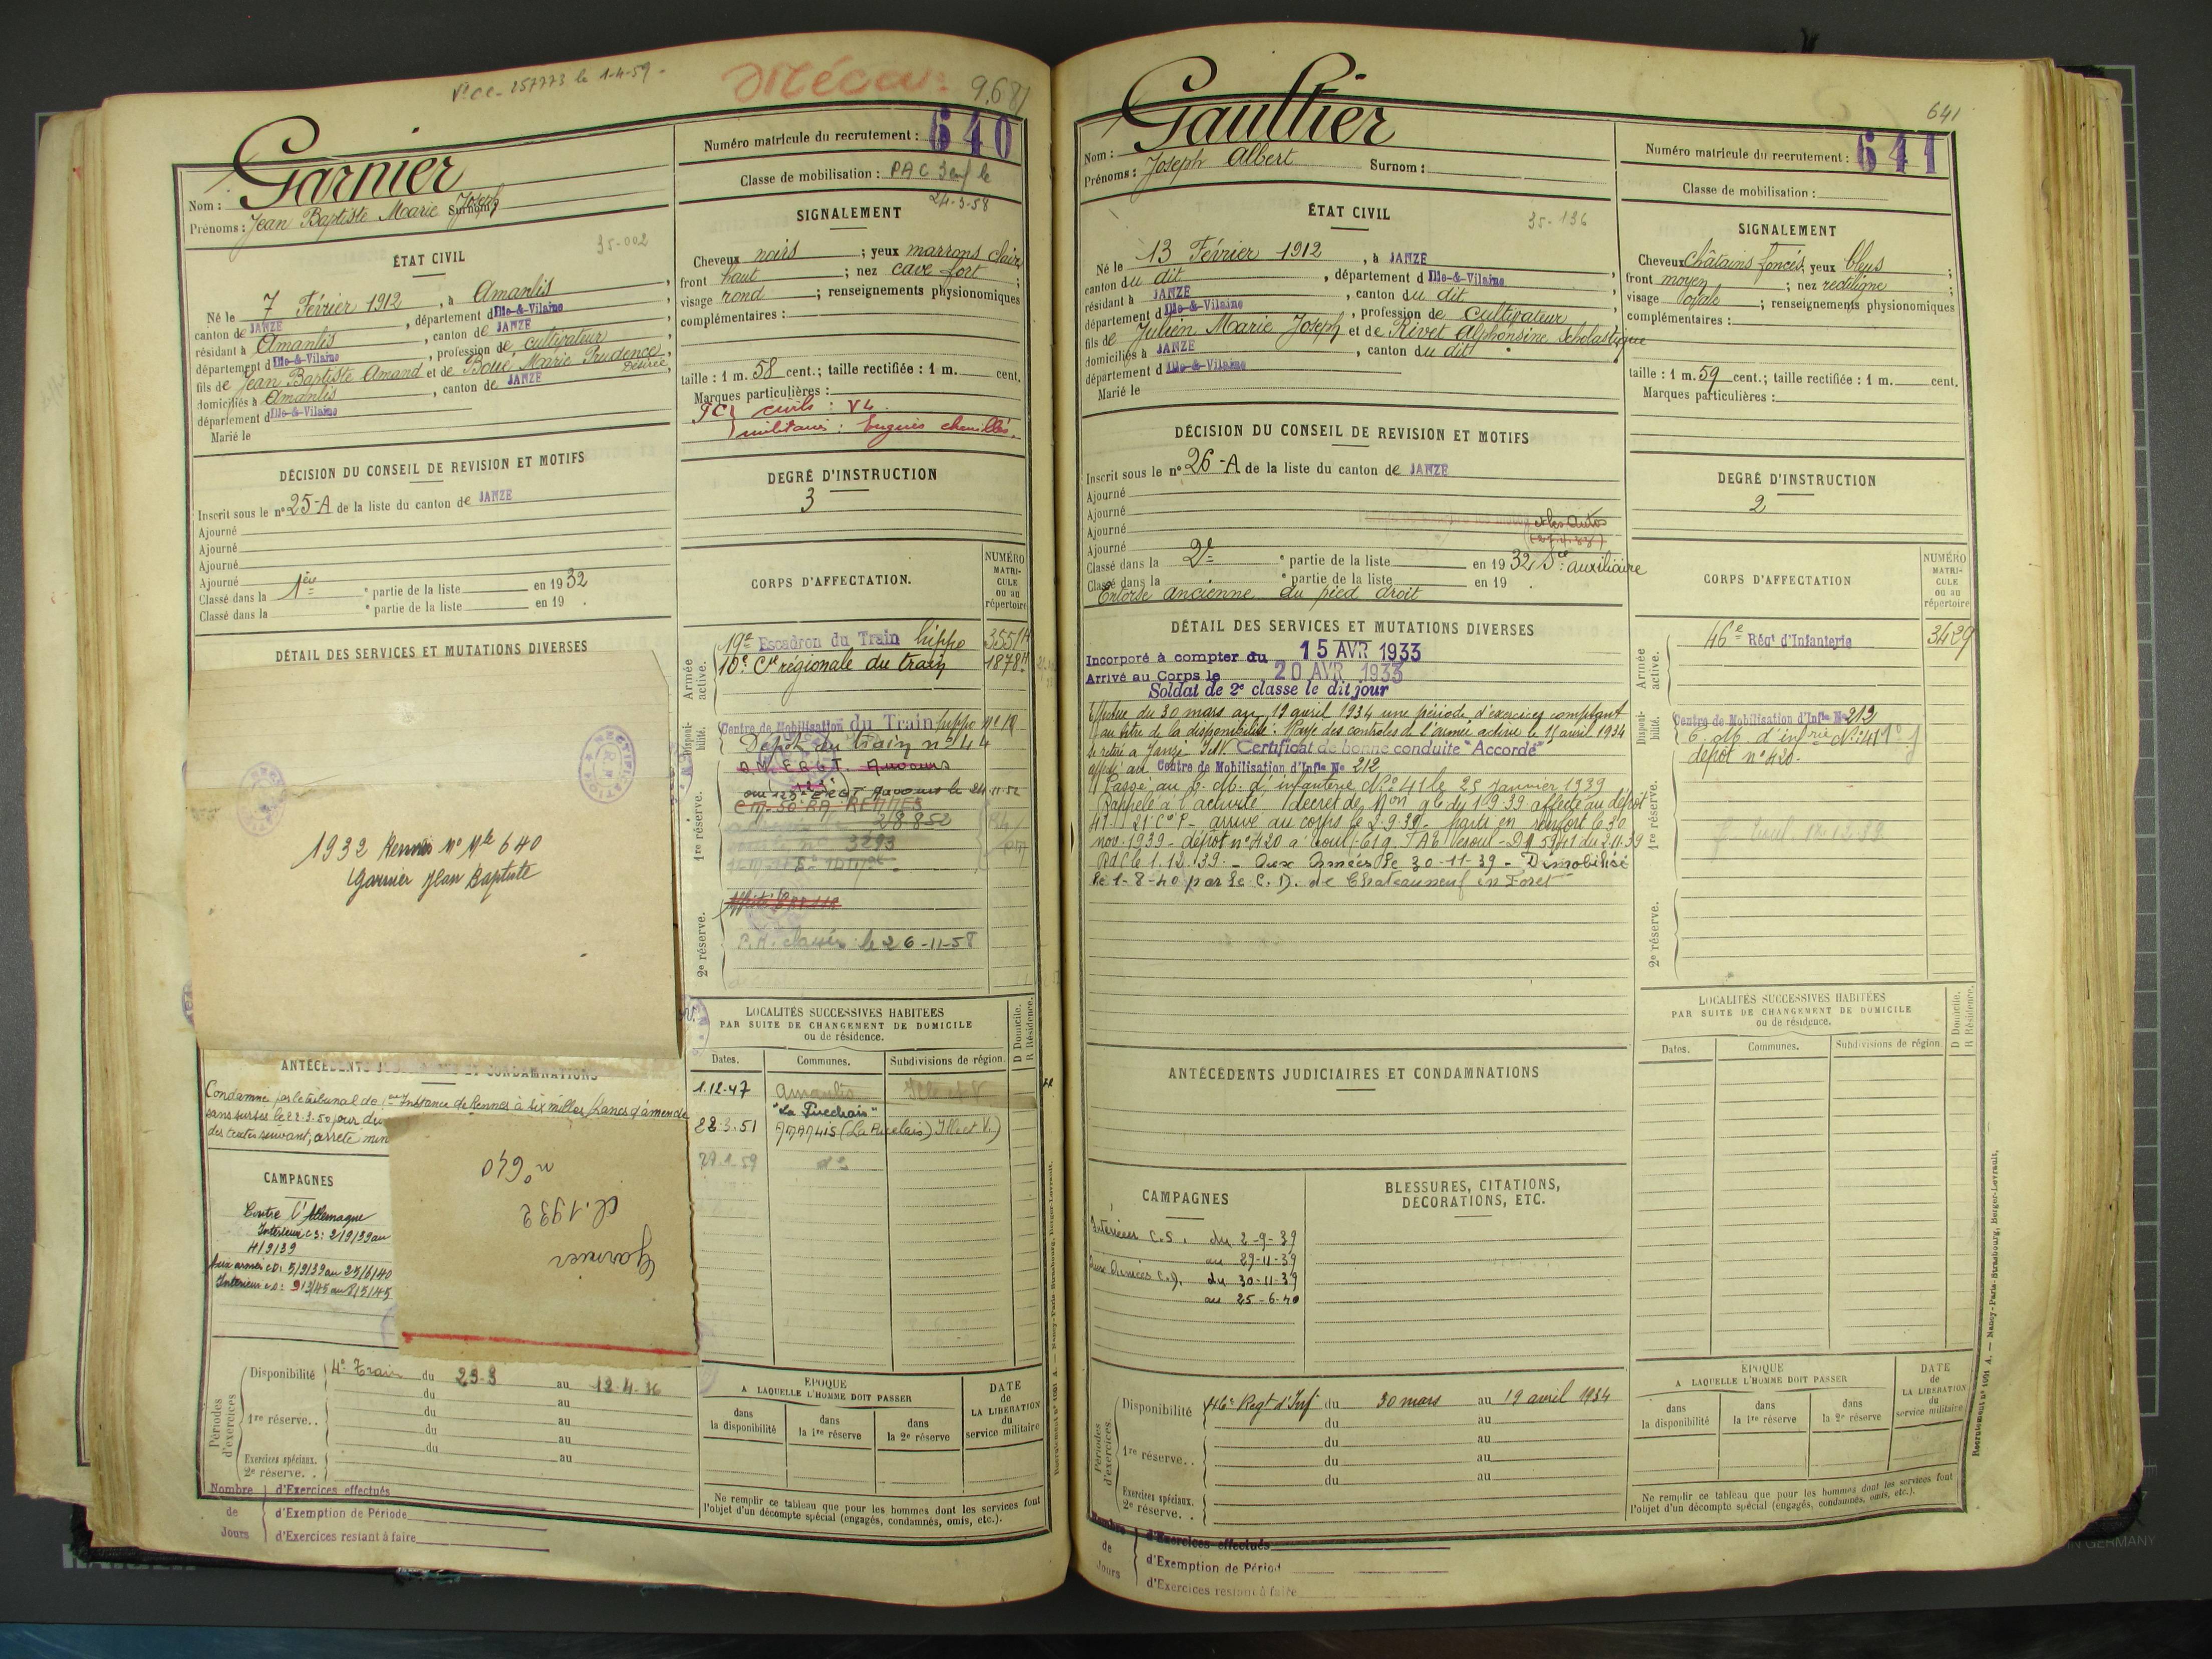 Vice - 257773 le 1-4-59 -
9.681
Garnier
Nom :
Prénoms : Jean Baptiste Marie Joseph
Surnom
Numéro matricule du recrutement : 640
Classe de mobilisation : PAC 3 enf le
24-3-58
ÉTAT CIVIL
35-002
Né le 7 Février 1912, à Amanlis,
canton de JANZÉ, département d Ille-&-Vilaine,
résidant à Amanlis, canton de JANZÉ,
département d Ille-&-Vilaine, profession de cultivateur,
fils de Jean Baptiste Amand et de Boué Marie Prudence
Désirée,
domiciliés à Amanlis, canton de JANZÉ
département d Ille-&-Vilaine
Marié le
SIGNALEMENT
Cheveux noirs ; yeux marrons clairs
front haut ; nez cave fort ;
visage rond ; renseignements physionomiques
complémentaires :
taille : 1 m. 58 cent.; taille rectifiée : 1 m. cent.
Marques particulières :
PC civils : VL.
militaires : Engins chenillés.
DÉCISION DU CONSEIL DE REVISION ET MOTIFS
Inscrit sous le n° 25-A de la liste du canton de JANZÉ
Ajourné
Ajourné
Ajourné
Ajourné
Classé dans la 1ère partie de la liste en 1932
Classé dans la e partie de la liste en 19 .
DEGRÉ D'INSTRUCTION
3
CORPS D'AFFECTATION.
NUMÉRO
MATRI-
CULE
ou au
répertoire
Armée
active.
19e Escadron du Train hippo 3551H
10e Cie régionale du train 1878H
Disponi-
bilité.
Centre de Mobilisation du Train hippo n° 10
Dépôt du train n° 44
1re réserve.
CM-50 RA RENNES
28852
3293
2e réserve.
P.A. classé le 26-11-58
DÉTAIL DES SERVICES ET MUTATIONS DIVERSES
RECTIFICATION
R.F.
1932 Rennes N° Mle 640
Garnier Jean Baptiste
ANTÉCÉDENTS JUDICIAIRES ET CONDAMNATIONS
Condamné par le tribunal de 1ère Instance de Rennes à six milles francs d'amende
sans sursis le 22.3.50 pour
des textes suivant; arrêté min
n° 640
cl. 1932
Garnier
CAMPAGNES
Contre l'Allemagne
Intérieur CS: 2/9/39 au
4/9/39
Aux armées CD: 5/9/39 au 25/6/40
Intérieur CD: 9/3/45 au 8/5/45
LOCALITÉS SUCCESSIVES HABITÉES
PAR SUITE DE CHANGEMENT DE DOMICILE
ou de résidence.
D Domicile.
R Résidence.
Dates.
Communes.
Subdivisions de région.
1.12.47 Amanlis Ille et V
28.3.51 AMANLIS Ille et V.)
27.1.59 do
Périodes
d'exercices
Disponibilité 4e Train du 23-3 au 12-4-36
du au
1re réserve.. du au
du au
du au
Exercices spéciaux. au
2e réserve. .
Nombre
de
Jours
d'Exercices effectués
d'Exemption de Période
d'Exercices restant à faire
ÉPOQUE
A LAQUELLE L'HOMME DOIT PASSER
dans
la disponibilité
dans
la 1re réserve
dans
la 2e réserve
DATE
de
LA LIBÉRATION
du
service militaire
Ne remplir ce tableau que pour les hommes dont les services font
l'objet d'un décompte spécial (engagés, condamnés, omis, etc.).
Recrutement n° 1091 A. — Nancy-Paris-Strasbourg, Berger-Levrault.
641
Gaultier
Nom :
Prénoms : Joseph Albert Surnom :
Numéro matricule du recrutement : 641
Classe de mobilisation :
ÉTAT CIVIL
35-136
Né le 13 Février 1912, à JANZÉ,
canton du dit, département d Ille-&-Vilaine,
résidant à JANZÉ, canton du dit,
département d Ille-&-Vilaine, profession de cultivateur
fils de Julien Marie Joseph et de Rivet Alphonsine Scholastique
domiciliés à JANZÉ, canton du dit
département d Ille-&-Vilaine
Marié le
SIGNALEMENT
Cheveux châtains foncés, yeux bleus ;
front moyen ; nez rectiligne ;
visage ovale ; renseignements physionomiques
complémentaires :
taille : 1 m. 59 cent.; taille rectifiée : 1 m. cent.
Marques particulières :
DÉCISION DU CONSEIL DE REVISION ET MOTIFS
Inscrit sous le n° 26-A de la liste du canton de JANZÉ
Ajourné
Ajourné
Ajourné
Ajourné
Classé dans la 2e partie de la liste en 1932 Sce auxiliaire
Classé dans la e partie de la liste en 19 .
Entorse ancienne du pied droit
DEGRÉ D'INSTRUCTION
2
CORPS D'AFFECTATION
NUMÉRO
MATRI-
CULE
ou au
répertoire
Armée
active.
46e Régt d'Infanterie 3429
Disponi-
bilité.
Centre de Mobilisation d'Infie No 212
C. M. d'infrie N° 41
dépôt n° 420-
1re réserve.
2e réserve.
DÉTAIL DES SERVICES ET MUTATIONS DIVERSES
Incorporé à compter du 15 AVR 1933
Arrivé au Corps le 20 AVR 1933
Soldat de 2e classe le dit jour
Effectue du 30 mars au 19 avril 1934 une période d'exercices comptant
au titre de la disponibilité. Rayé des contrôles de l'armée active le 15 avril 1934
se retire à Janzé I&V. Certificat de bonne conduite "Accordé"
affecté au Centre de Mobilisation d'Infie No 212
Passé au C. M. d'infanterie N° 41 le 25 Janvier 1939
Rappelé à l'activité décret de Mon gle du 1 9 39 affecté au dépôt
41 - 21e Cie P - arrivé au corps le 2-9-39 - parti en renfort le 30
nov-1939 - dépôt n° 420 à Vesoul du 2-11-39
RdC le 1.12.39 - Aux Armées le 30-11-39 - Démobilisé
le 1-8-40 par le C. D. de Chateauneuf en Foret
ANTÉCÉDENTS JUDICIAIRES ET CONDAMNATIONS
CAMPAGNES
Intérieur C.S. du 2-9-39
au 29-11-39
Aux Armées C.D. du 30-11-39
au 25-6-40
BLESSURES, CITATIONS,
DÉCORATIONS, ETC.
LOCALITÉS SUCCESSIVES HABITÉES
PAR SUITE DE CHANGEMENT DE DOMICILE
ou de résidence.
D Domicile.
R Résidence.
Dates.
Communes.
Subdivisions de région.
Périodes
d'exercices
Disponibilité 46e Regt d'Inf du 30 mars au 19 avril 1934
du au
1re réserve.. du au
du au
du au
Exercices spéciaux.
2e réserve. .
Nombre
de
Jours
d'Exercices effectués
d'Exemption de Périod
d'Exercices restant à faire
ÉPOQUE
A LAQUELLE L'HOMME DOIT PASSER
dans
la disponibilité
dans
la 1re réserve
dans
la 2e réserve
DATE
de
LA LIBÉRATION
du
service militaire
Ne remplir ce tableau que pour les hommes dont les services font
l'objet d'un décompte spécial (engagés, condamnés, omis, etc.).
Recrutement n° 1091 A. — Nancy-Paris-Strasbourg, Berger-Levrault.
IN GERMANY